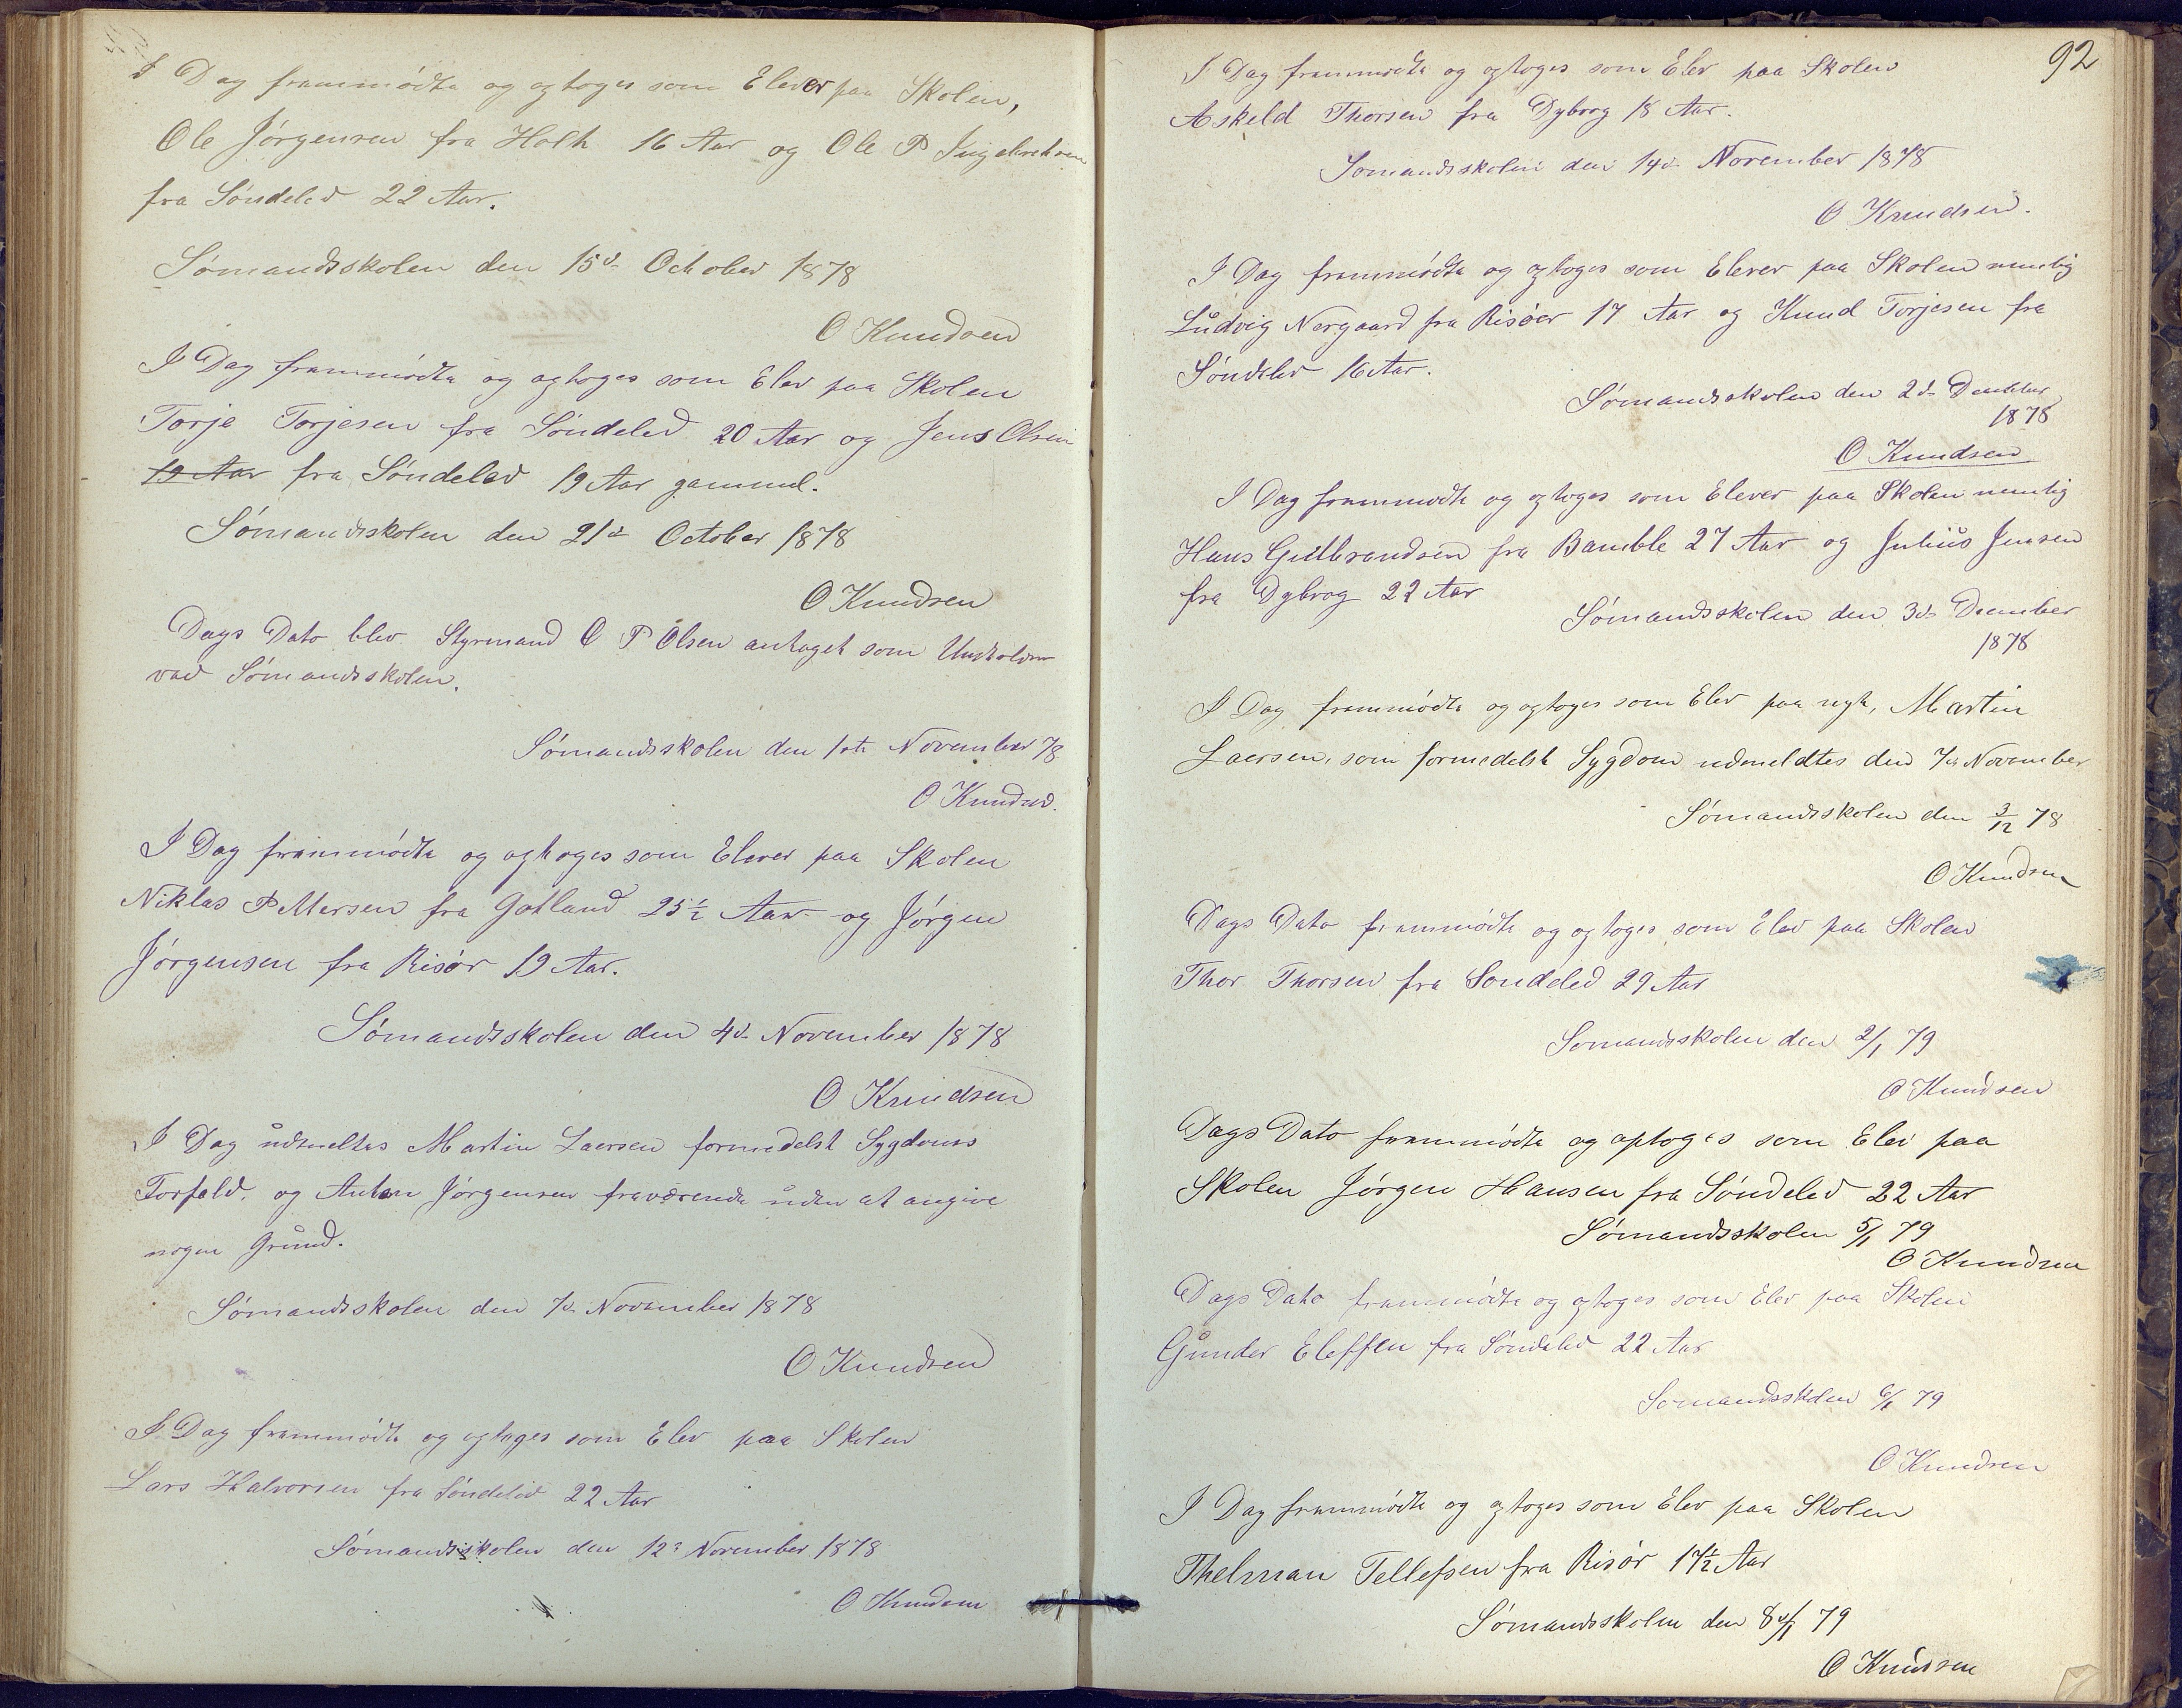 I Dag fremmødte og optoges som Elever paa Skolen,
Ole Jörgensen fra Holt 16 Aar og Ole P Ingebretsen
fra Söndeled 22 Aar.
Sömandsskolen den 15de October 1878
O Knudsen
I Dag fremmödte og optoges som Elev paa Skolen
Torje Torjesen fra Söndeled 20 Aar og Jens Olsen
19 Aar fra Söndeled 19 Aar gammel.
Sömandsskolen den 21de October 1878
O Knudsen
Dags Dato blev Styrmand O P Olsen antaget som Underlærer
ved Sömandsskolen.
Sömandsskolen den 1ste November 78
O Knudsen.
I Dag fremmödte og optoges som Elever paa Skolen
Niklas Pettersen fra Gotland 25½ Aar og Jörgen
Jörgensen fra Risör 19 Aar.
Sömandsskolen den 4de November 1878
O Knudsen
I Dag udmeltes Martin Laersen formedelst Sygdoms
Forfald, og Anton Jörgensen fraværende uden at angive
nogen Grund.
Sömandsskolen den 7de November 1878
O Knudsen
I Dag fremmödte og optoges som Elev paa Skolen
Lars Halvorsen fra Söndeled 22 Aar
Sömandsskolen den 12te November 1878
O Knudsen
92
I Dag fremmödte og optoges som Elev paa Skolen
Askeld Thorsen fra Dybvag 18 Aar.
Sömandsskolen den 14de November 1878
O Knudsen.
I Dag fremmödte og optoges som Elever paa Skolen nemlig
Ludvig Nergaard fra Risöer 17 Aar og Knud Torjesen fra
Söndeled 16 Aar.
Sömandsskolen den 2de December
1878
O Knudsen
I Dag fremmödte og optoges som Elever paa Skolen nemlig
Hans Gulbrandsen fra Bamble 27 Aar og Julius Jensen
fra Dybvag 22 Aar
Sömandsskolen den 3de December
1878
I Dag fremmödte og optoges som Elev paa nyt, Martin
Laersen, som formedelst Sygdom udmeldtes den 7de November
Sömandsskolen den 3/12 78
O Knudsen
Dags Dato fremmödte og optoges som Elev paa Skolen
Thor Thorsen fra Söndeled 29 Aar
Sömandsskolen den 2/1 79
O Knudsen
Dags Dato fremmödte og optoges som Elev paa
Skolen Jörgen Hansen fra Söndeled 22 Aar
Sömandsskolen 5/1 79
O Knudsen
Dags Dato fremmödte og optoges som Elev paa Skolen
Gunder Eleffsen fra Söndeled 22 Aar
Sömandsskolen 6/1 79
O Knudsen
I Dag fremmödte og optoges som Elev paa Skolen
Thelman Tellefsen fra Risör 17½ Aar
Sömandsskolen den 8de/1 79
O Knudsen